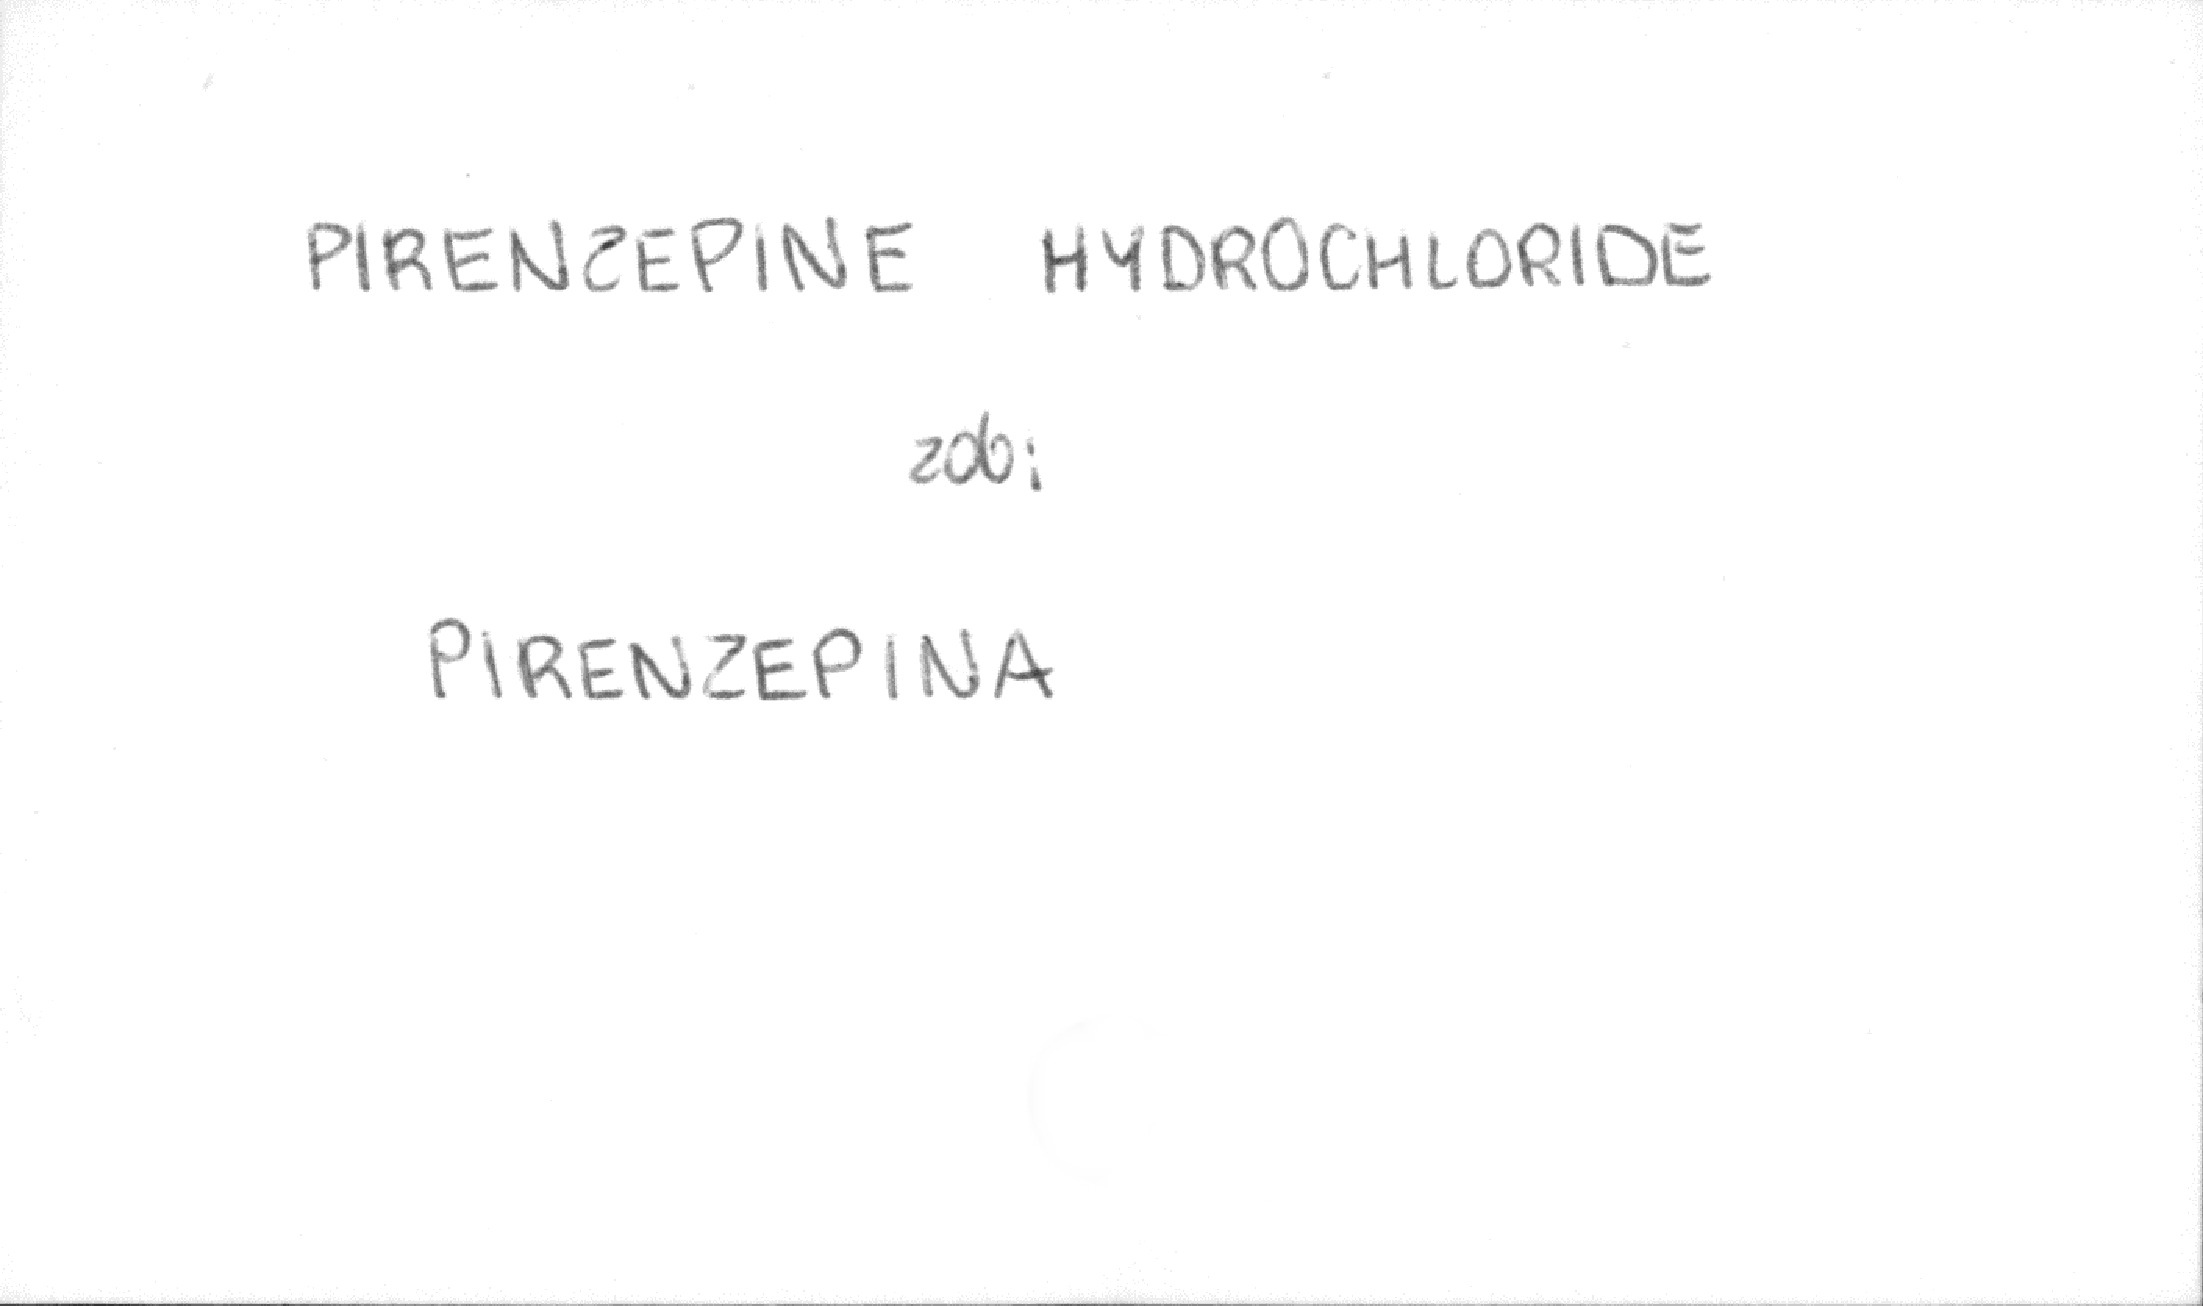 PIRENZEPINE HYDROCHLORIDE
zob:
PIRENZEPINA